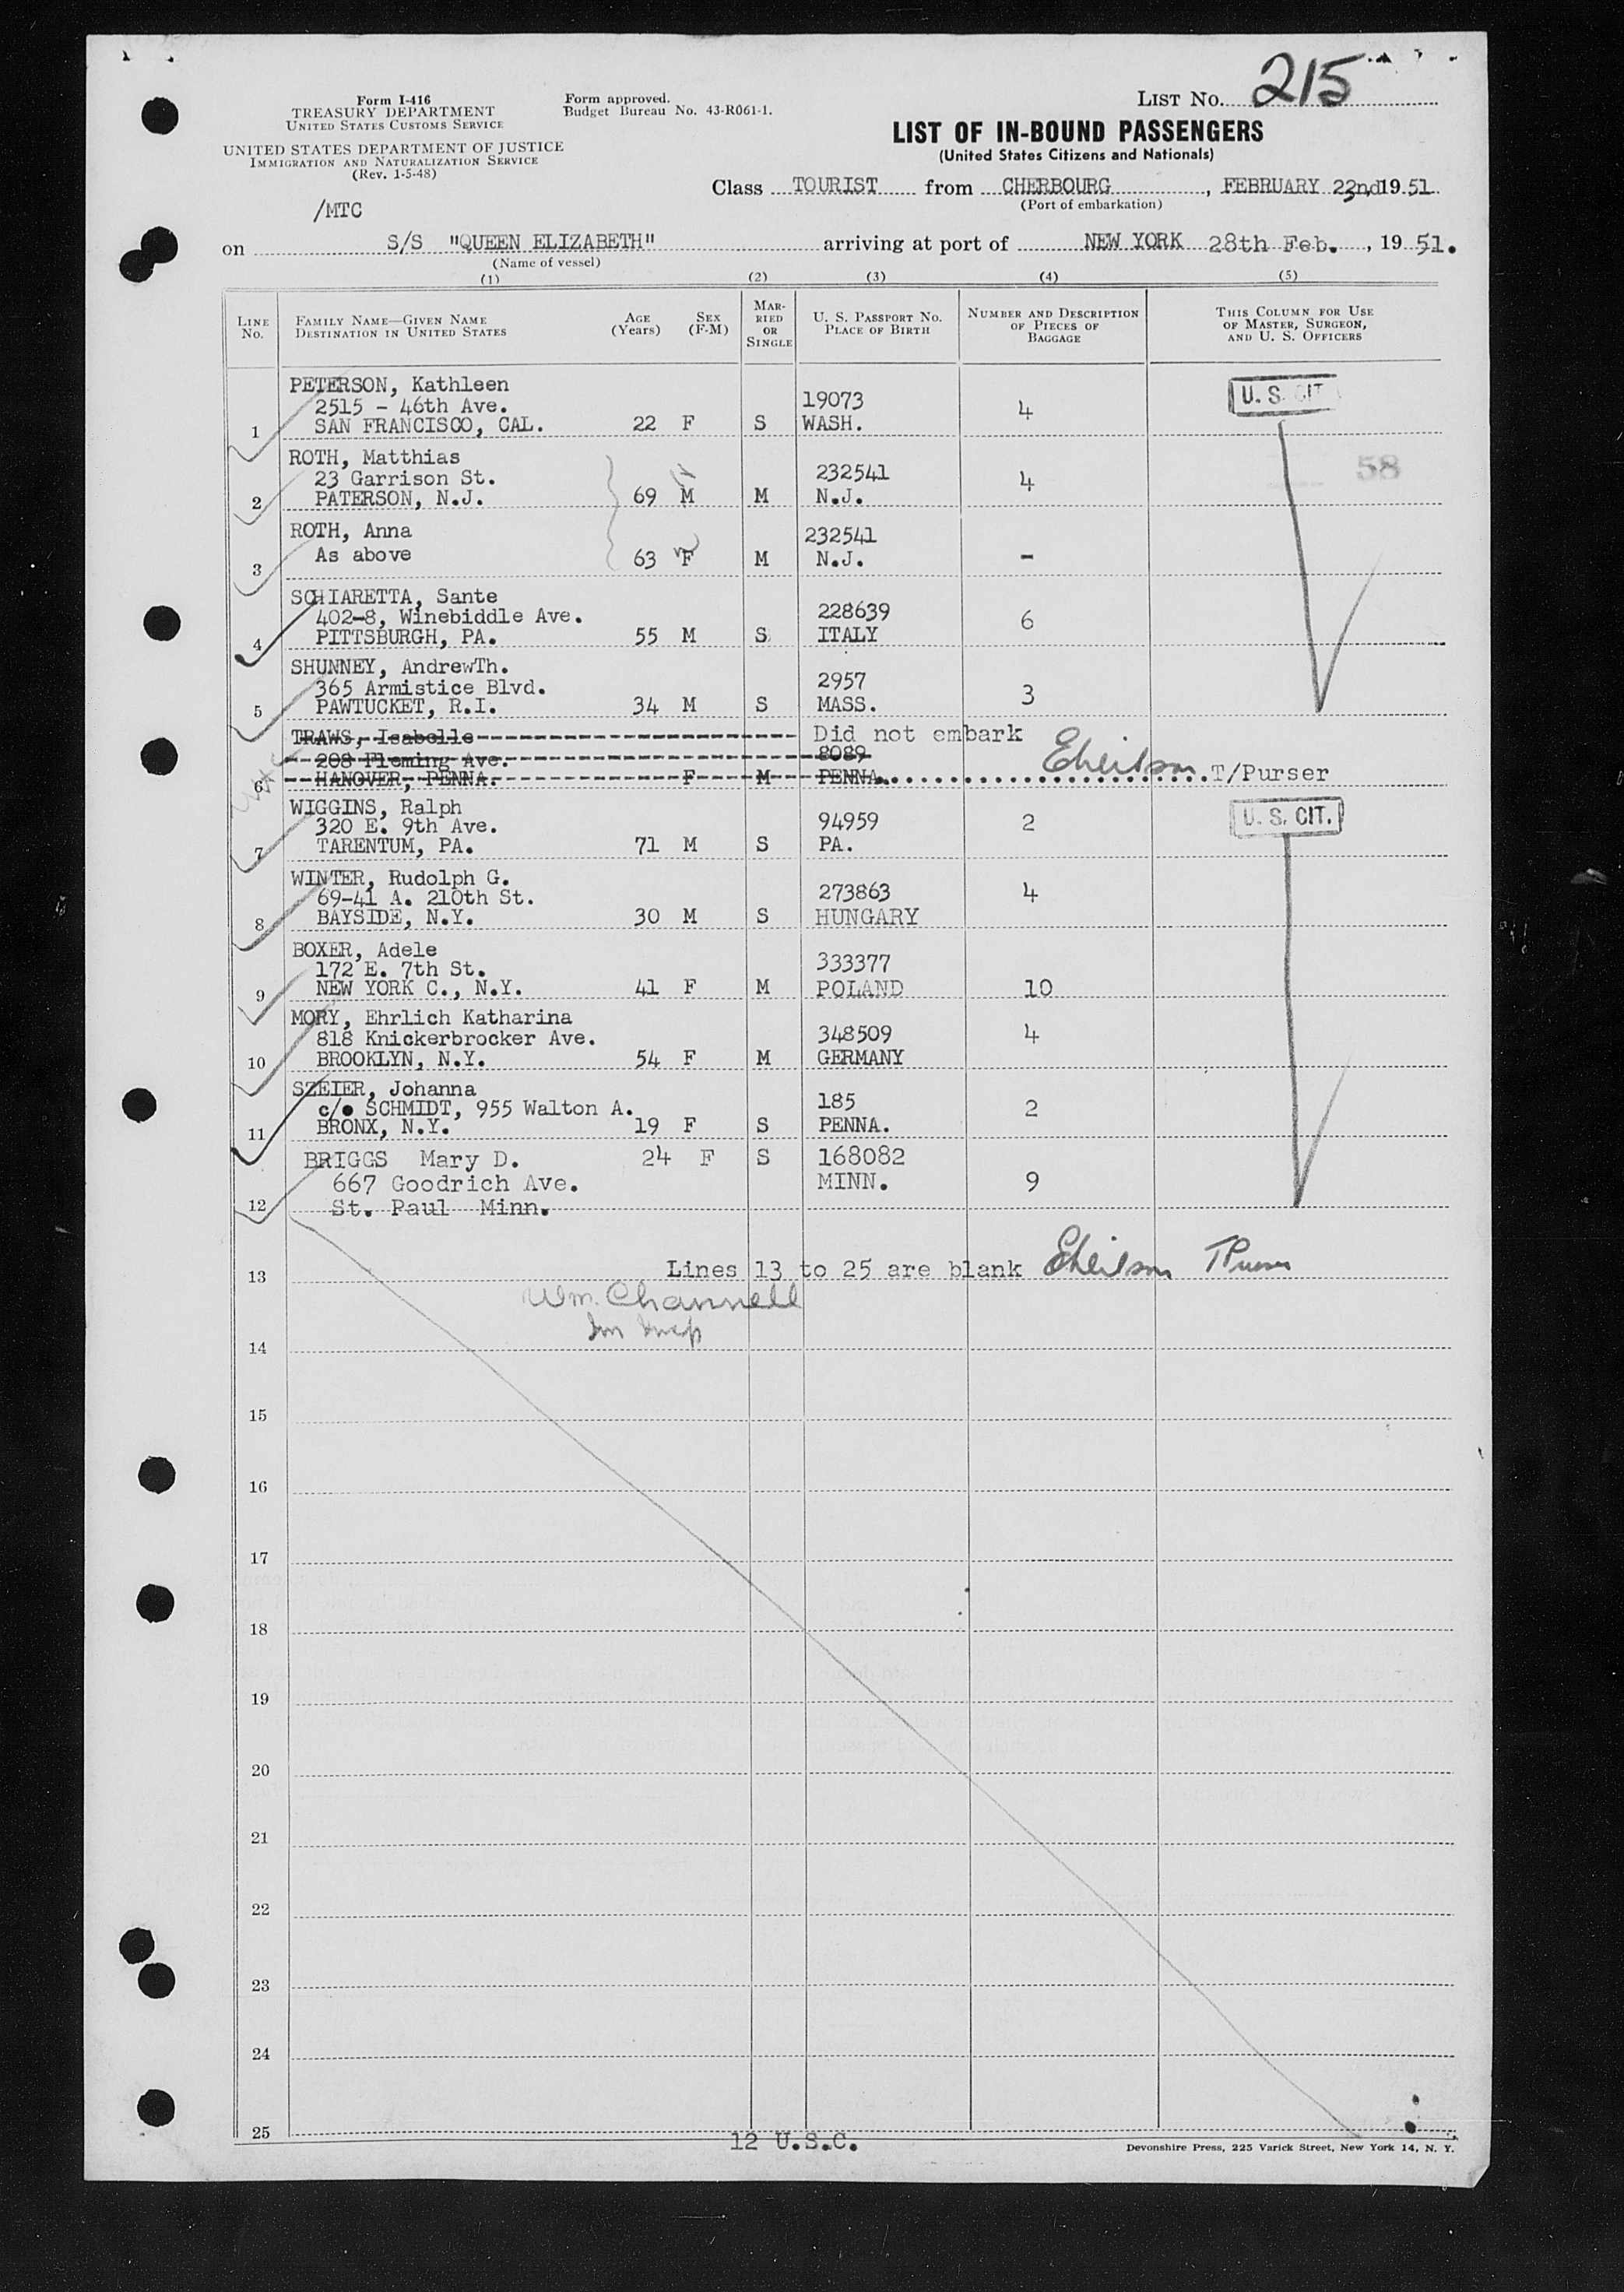 LIST NO. 215
Form I-416
TREASURY DEPARTMENT
UNITED STATES CUSTOMS SERVICE
Form approved.
Budget Bureau No. 43-R061-1.
UNITED STATES DEPARTMENT OF JUSTICE
IMMIGRATION AND NATURALIZATION SERVICE
(Rev. 1-5-48)
LIST OF IN-BOUND PASSENGERS
(United States Citizens and Nationals)
Class TOURIST from CHERBOURG, FEBRUARY 22nd, 19 51
(Port of embarkation)
/MTC
on S/S "QUEEN ELIZABETH" arriving at port of NEW YORK 28th Feb., 19 51.
(Name of vessel)
(1) (2) (3) (4) (5)
LINE NO. FAMILY NAME—GIVEN NAME DESTINATION IN UNITED STATES AGE (Years) SEX (F-M) MARRIED OR SINGLE U. S. PASSPORT NO. PLACE OF BIRTH NUMBER AND DESCRIPTION OF PIECES OF BAGGAGE THIS COLUMN FOR USE OF MASTER, SURGEON, AND U. S. OFFICERS
PETERSON, Kathleen U. S. CIT
2515 - 46th Ave. 19073 4
1 SAN FRANCISCO, CAL. 22 F S WASH.
ROTH, Matthias 58
23 Garrison St. 232541 4
2 PATERSON, N.J. 69 M M N.J.
ROTH, Anna 232541
3 As above 63 F M N.J. -
SCHIARETTA, Sante
402-8, Winebiddle Ave. 228639 6
4 PITTSBURGH, PA. 55 M S ITALY
SHUNNEY, AndrewTh.
365 Armistice Blvd. 2957 3
5 PAWTUCKET, R.I. 34 M S MASS.
TRAWS, Isabelle Did not embark
208 Fleming Ave. 8089
6 HANOVER, PENNA. F M PENNA. T/Purser
WIGGINS, Ralph U. S. CIT.
320 E. 9th Ave. 94959 2
7 TARENTUM, PA. 71 M S PA.
WINTER, Rudolph G.
69-41 A. 210th St. 273863 4
8 BAYSIDE, N.Y. 30 M S HUNGARY
BOXER, Adele
172 E. 7th St. 333377
9 NEW YORK C., N.Y. 41 F M POLAND 10
MORY, Ehrlich Katharina
818 Knickerbrocker Ave. 348509 4
10 BROOKLYN, N.Y. 54 F M GERMANY
SZEIER, Johanna
c/o SCHMIDT, 955 Walton A. 185 2
11 BRONX, N.Y. 19 F S PENNA.
BRIGGS Mary D. 24 F S 168082
667 Goodrich Ave. MINN. 9
12 St. Paul Minn.
13 Lines 13 to 25 are blank
Wm. Channell
Im Insp
14
15
16
17
18
19
20
21
22
23
24
25
12 U.S.C.
Devonshire Press, 225 Varick Street, New York 14, N. Y.